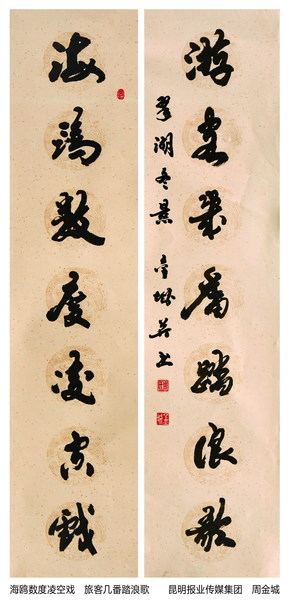 海鸥数度凌空戏
翠湖冬景
游客几番踏浪歌
海鸥数度凌空戏 旅客几番踏浪歌 昆明报业传媒集团 周金城